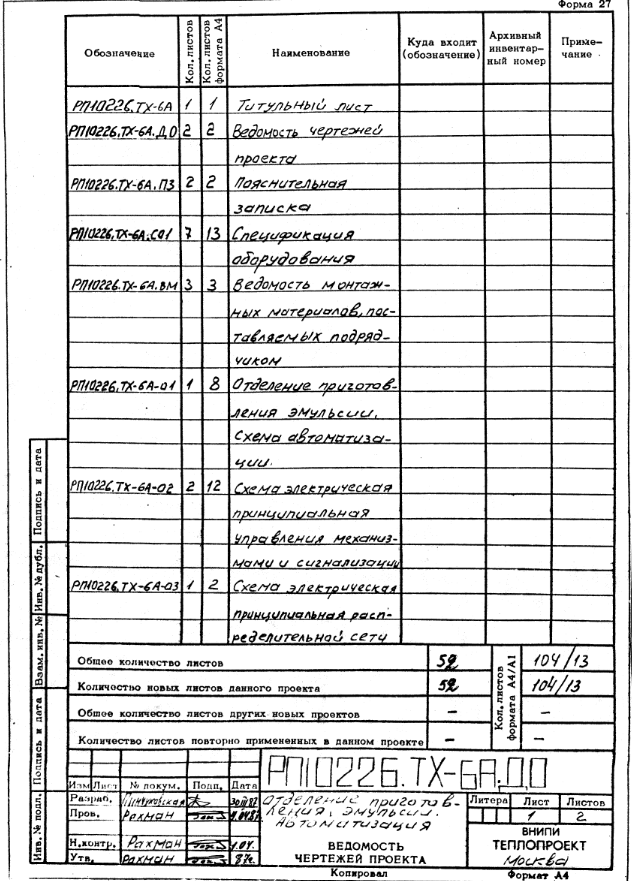 Форма 27
Обозначение Кол. листов Кол. листов формата А4 Наименование Куда входит (обозначение) Архивный инвентар- ный номер Приме- чание
РП10226.ТХ-6А 1 1 Титульный лист
РП10226.ТХ-6А.Д.О 2 2 Ведомость чертежей
проекта
РП10226.ТХ-6А.ПЗ 2 2 Пояснительная
записка
РП10226.ТХ-6А.СО1 7 13 Спецификация
оборудования
РП10226.ТХ-6А.ВМ 3 3 Ведомость монтаж-
ных материалов, пос-
тавляемых подряд-
чиком
РП10226.ТХ-6А-01 1 8 Отделение приготов-
ления эмульсии.
Схема автоматиза-
ции.
РП10226.ТХ-6А-02 2 12 Схема электрическая
принципиальная
управления механиз-
мами и сигнализации
РП10226.ТХ-6А-03 1 2 Схема электрическая
принципиальная расп-
ределительной сети
Общее количество листов 52 Кол. листов формата А4/А1 104/13
Количество новых листов данного проекта 52 104/13
Общее количество листов других новых проектов –
Количество листов повторно примененных в данном проекте – –
РП10226.ТХ-6А.Д.О
Изм Лист № докум. Подп. Дата
Разраб.
Пров. Рахман
Н.контр. Рахман
Утв. Рахман
Отделение приготов-
ления эмульсии.
Автоматизация
ВЕДОМОСТЬ
ЧЕРТЕЖЕЙ ПРОЕКТА
Литера Лист Листов
1 2
ВНИПИ
ТЕПЛОПРОЕКТ
Москва
Копировал Формат А4
Инв. № подл. Подпись и дата Взам. инв. № Инв. № дубл. Подпись и дата